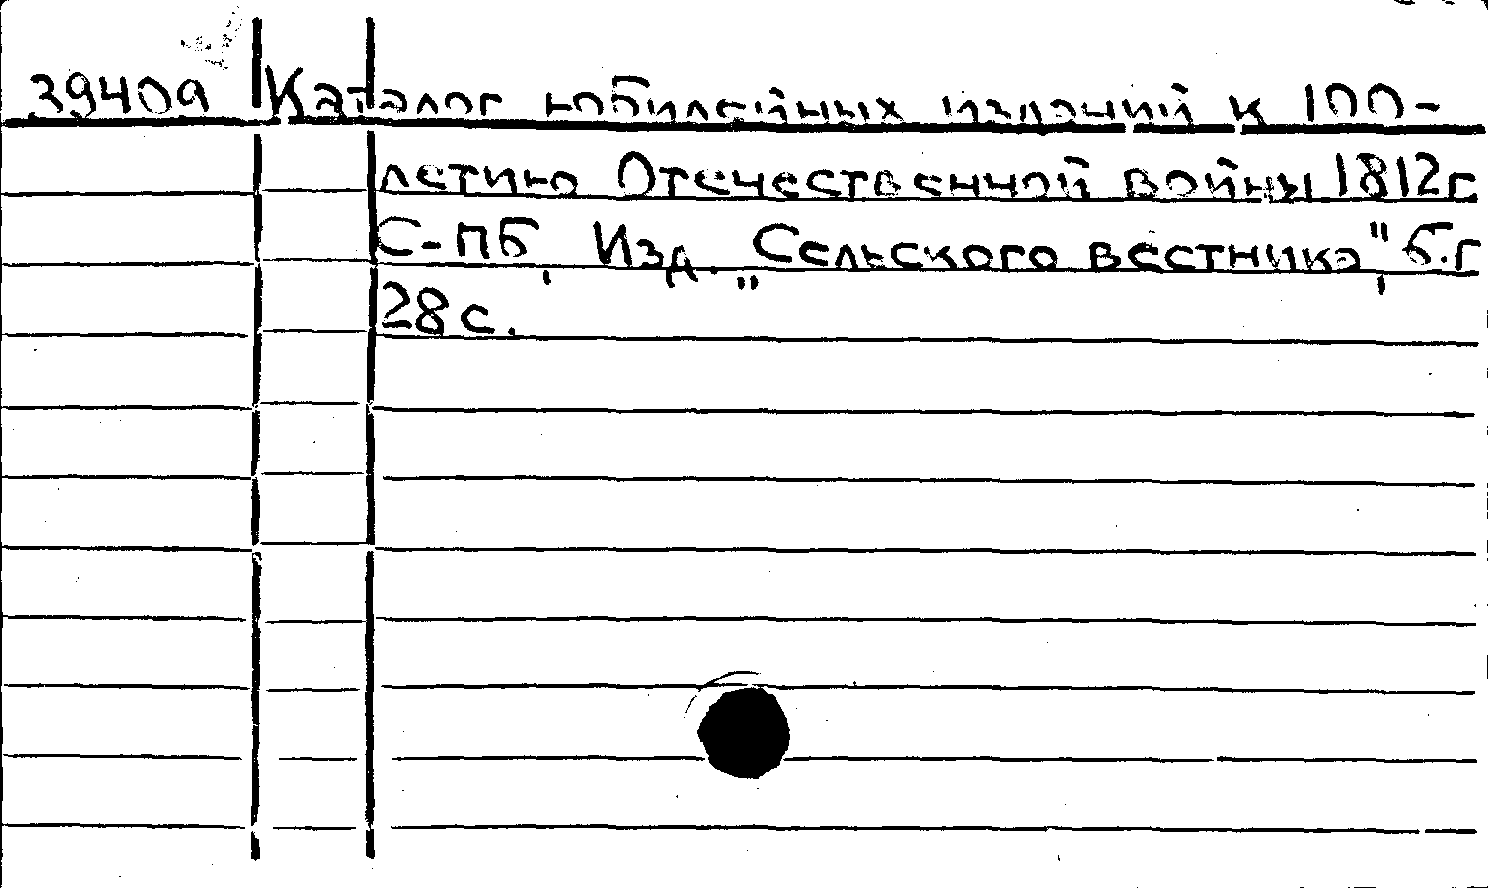 39409 Каталог юбилейных изданий к 100-
летию Отечественной войны 1812г.
С-Пб, Изд. „Сельского вестника", б.г
28 с.